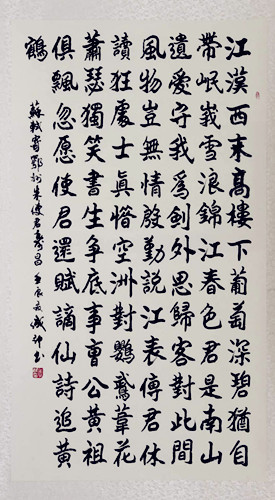 江漠西来高樓下葡萄深碧猶自
帶岷峩雪浪錦江春色君是南山
遺愛守我為劍外思歸客對此間
風物豈無情殷勤說江表傳君休
讀狂處士真惜空洲對鸚鵡葦花
蕭瑟獨笑書生爭底事曹公黃祖
俱飄忽愿使君還賦謫仙詩追黃
鶴
蘇軾寄鄂州朱使君壽昌壬辰夏